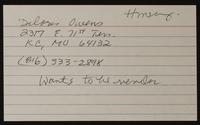 Delores Owens
2317 E. 71st Terr.
KC, MO 64132
(816) 333-2898
Wants to be vendor